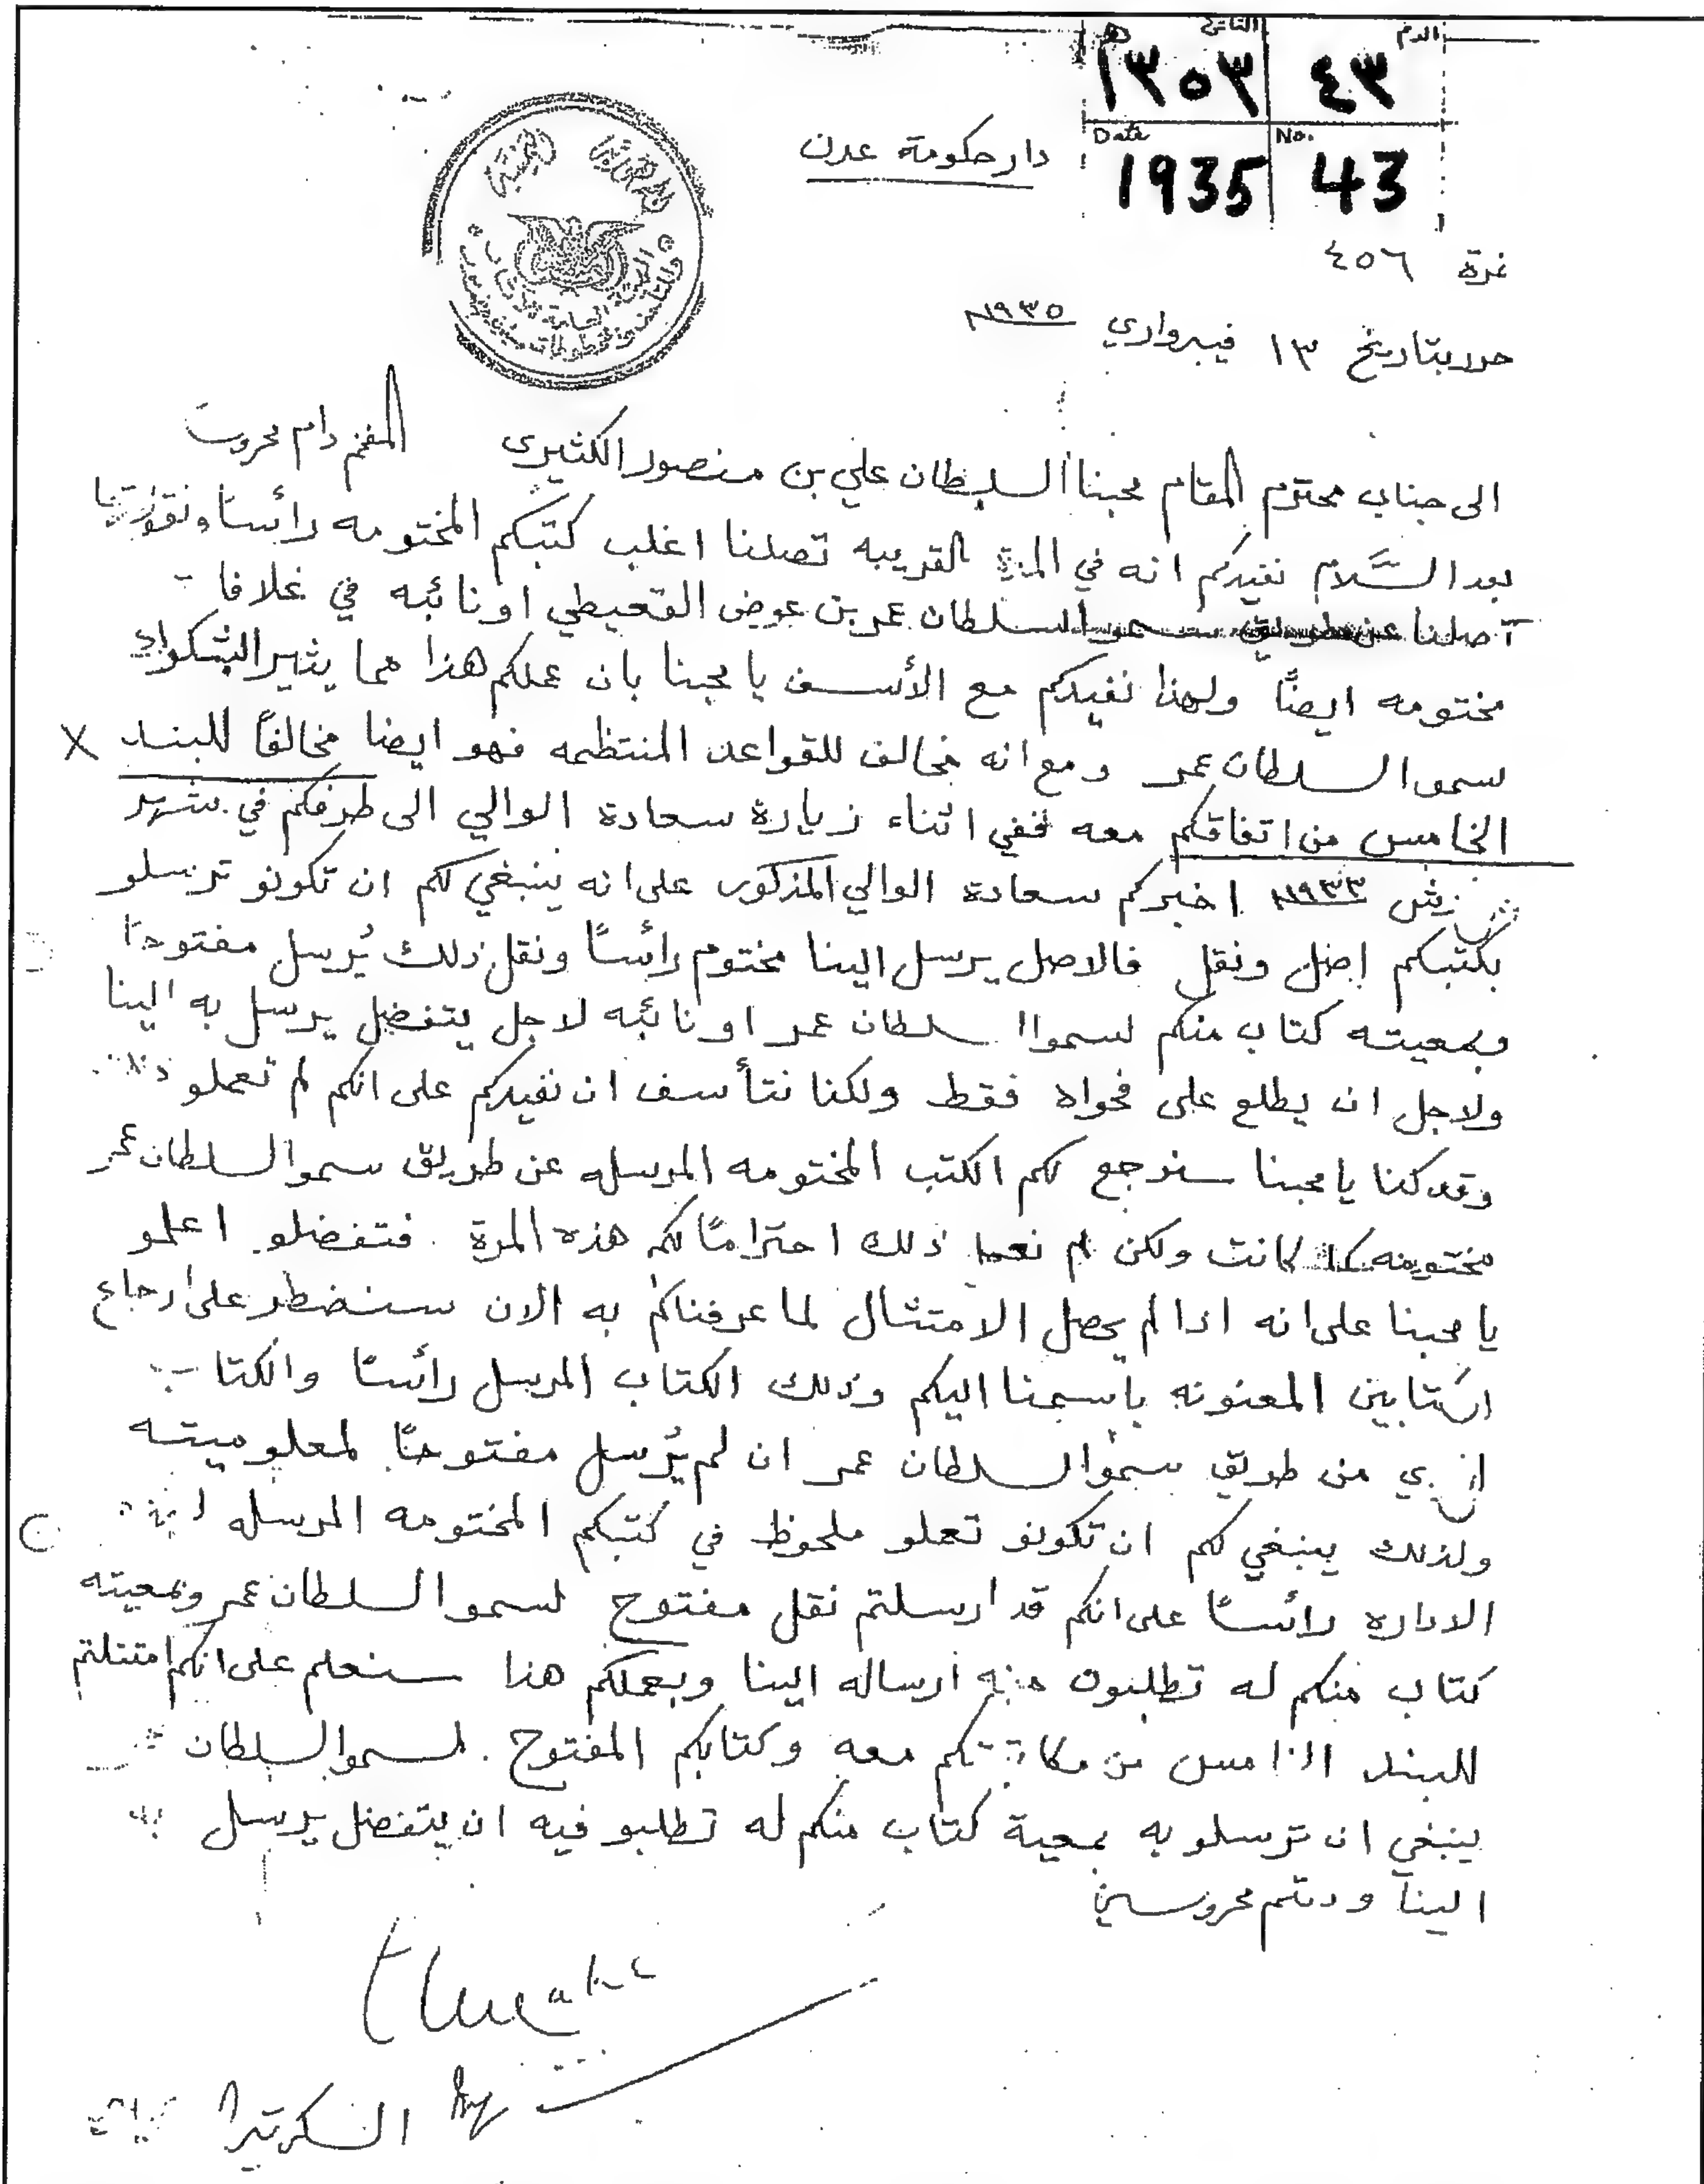 الرقم التاريخ هـ
٤٣ ١٣٥٣
No. Date
43 1935
دار حكومة عدن
نمرة ٤٥٦
حرر بتاريخ ١٣ فيبرواري ١٩٣٥م
الى جناب محترم المقام محبنا السلطان علي بن منصور الكثيري المفخم دام محروسا
بعد السَّلام نفيدكم انه في المدة القريبه تصلنا اغلب كتبكم المختومه رائسًا ونقوزتها
تصلنا عن طريق سمو السلطان عمر بن عوض القعيطي او نائبه في غلافات
مختومه ايضًا ولهذا نفيدكم مع الأسف يا محبنا بان عملكم هذا مما يثير الشكوك
سمو السلطان عمر ومع انه مخالف للقواعد المنتظمه فهو ايضا مخالفًا للبند X
الخامس من اتفاقكم معه ففي اثناء زيارة سعادة الوالي الى طرفكم في شهر
١٩٣٣م اخبركم سعادة الوالي المذكور على انه ينبغي لكم ان تكونو ترسلو
بكتبكم اصل ونقل فالاصل يرسل الينا مختوم رائسًا ونقل ذلك يُرسل مفتوحًا
وبمعيته كتاب منكم لسمو السلطان عمر او نائبه لاجل يتفضل يرسل به الينا
ولاجل ان يطلع على فحواه فقط ولكنا نتأسف ان نفيدكم على انكم لم تعملو ذلك
وقد كنا يا محبنا سنرجع لكم الكتب المختومه المرسله عن طريق سمو السلطان عمر
مختومه كما كانت ولكن لم نعمل ذلك احترامًا لكم هذه المرة فتفضلو اعلمو
يا محبنا على انه اذا لم يحصل الامتثال لما عرفناكم به الان سنضطر على ارجاع
الكتابين المعنونه باسمنا اليكم وذلك الكتاب المرسل رائسًا والكتاب
الذي من طريق سمو السلطان عمر ان لم يُرسل مفتوحًا لمعلوميته
ولذلك ينبغي لكم ان تكونو تعملو ملحوظ في كتبكم المختومه المرسله لهذه
الاداره رائسًا على انكم قد ارسلتم نقل مفتوح لسمو السلطان عمر وبمعيته
كتاب منكم له تطلبون منه ارساله الينا وبعملكم هذا سنعلم على انكم امتثلتم
للبند الخامس من مكاتبتكم معه وكتابكم المفتوح لسمو السلطان عمر
ينبغي ان ترسلو به بمعية كتاب منكم له تطلبو فيه ان يتفضل يرسل به
الينا ودمتم محروسين
السكرتير